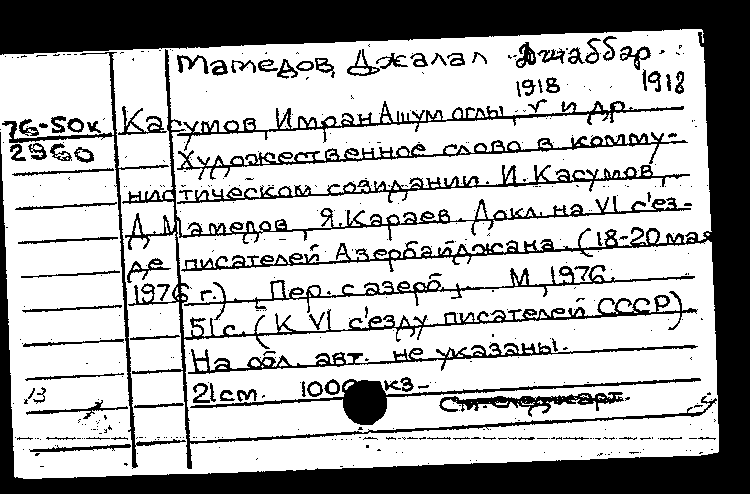 Мамедов, Джалал Джаббар.
1918 1918
76-50к Касумов, Имран Ашум оглы, и др.
2960 Художественное слово в комму-
нистическом созидании. И. Касумов,
Д. Мамедов, Я. Караев. Докл. на VI с'ез-
де писателей Азербайджана. (18-20 мая
1976 г.) Пер. с азерб. М, 1976.
51 с. (К VI с'езду писателей СССР)
На обл. авт. не указаны.
13 21 см. 1000 экз.
См. след. карт.